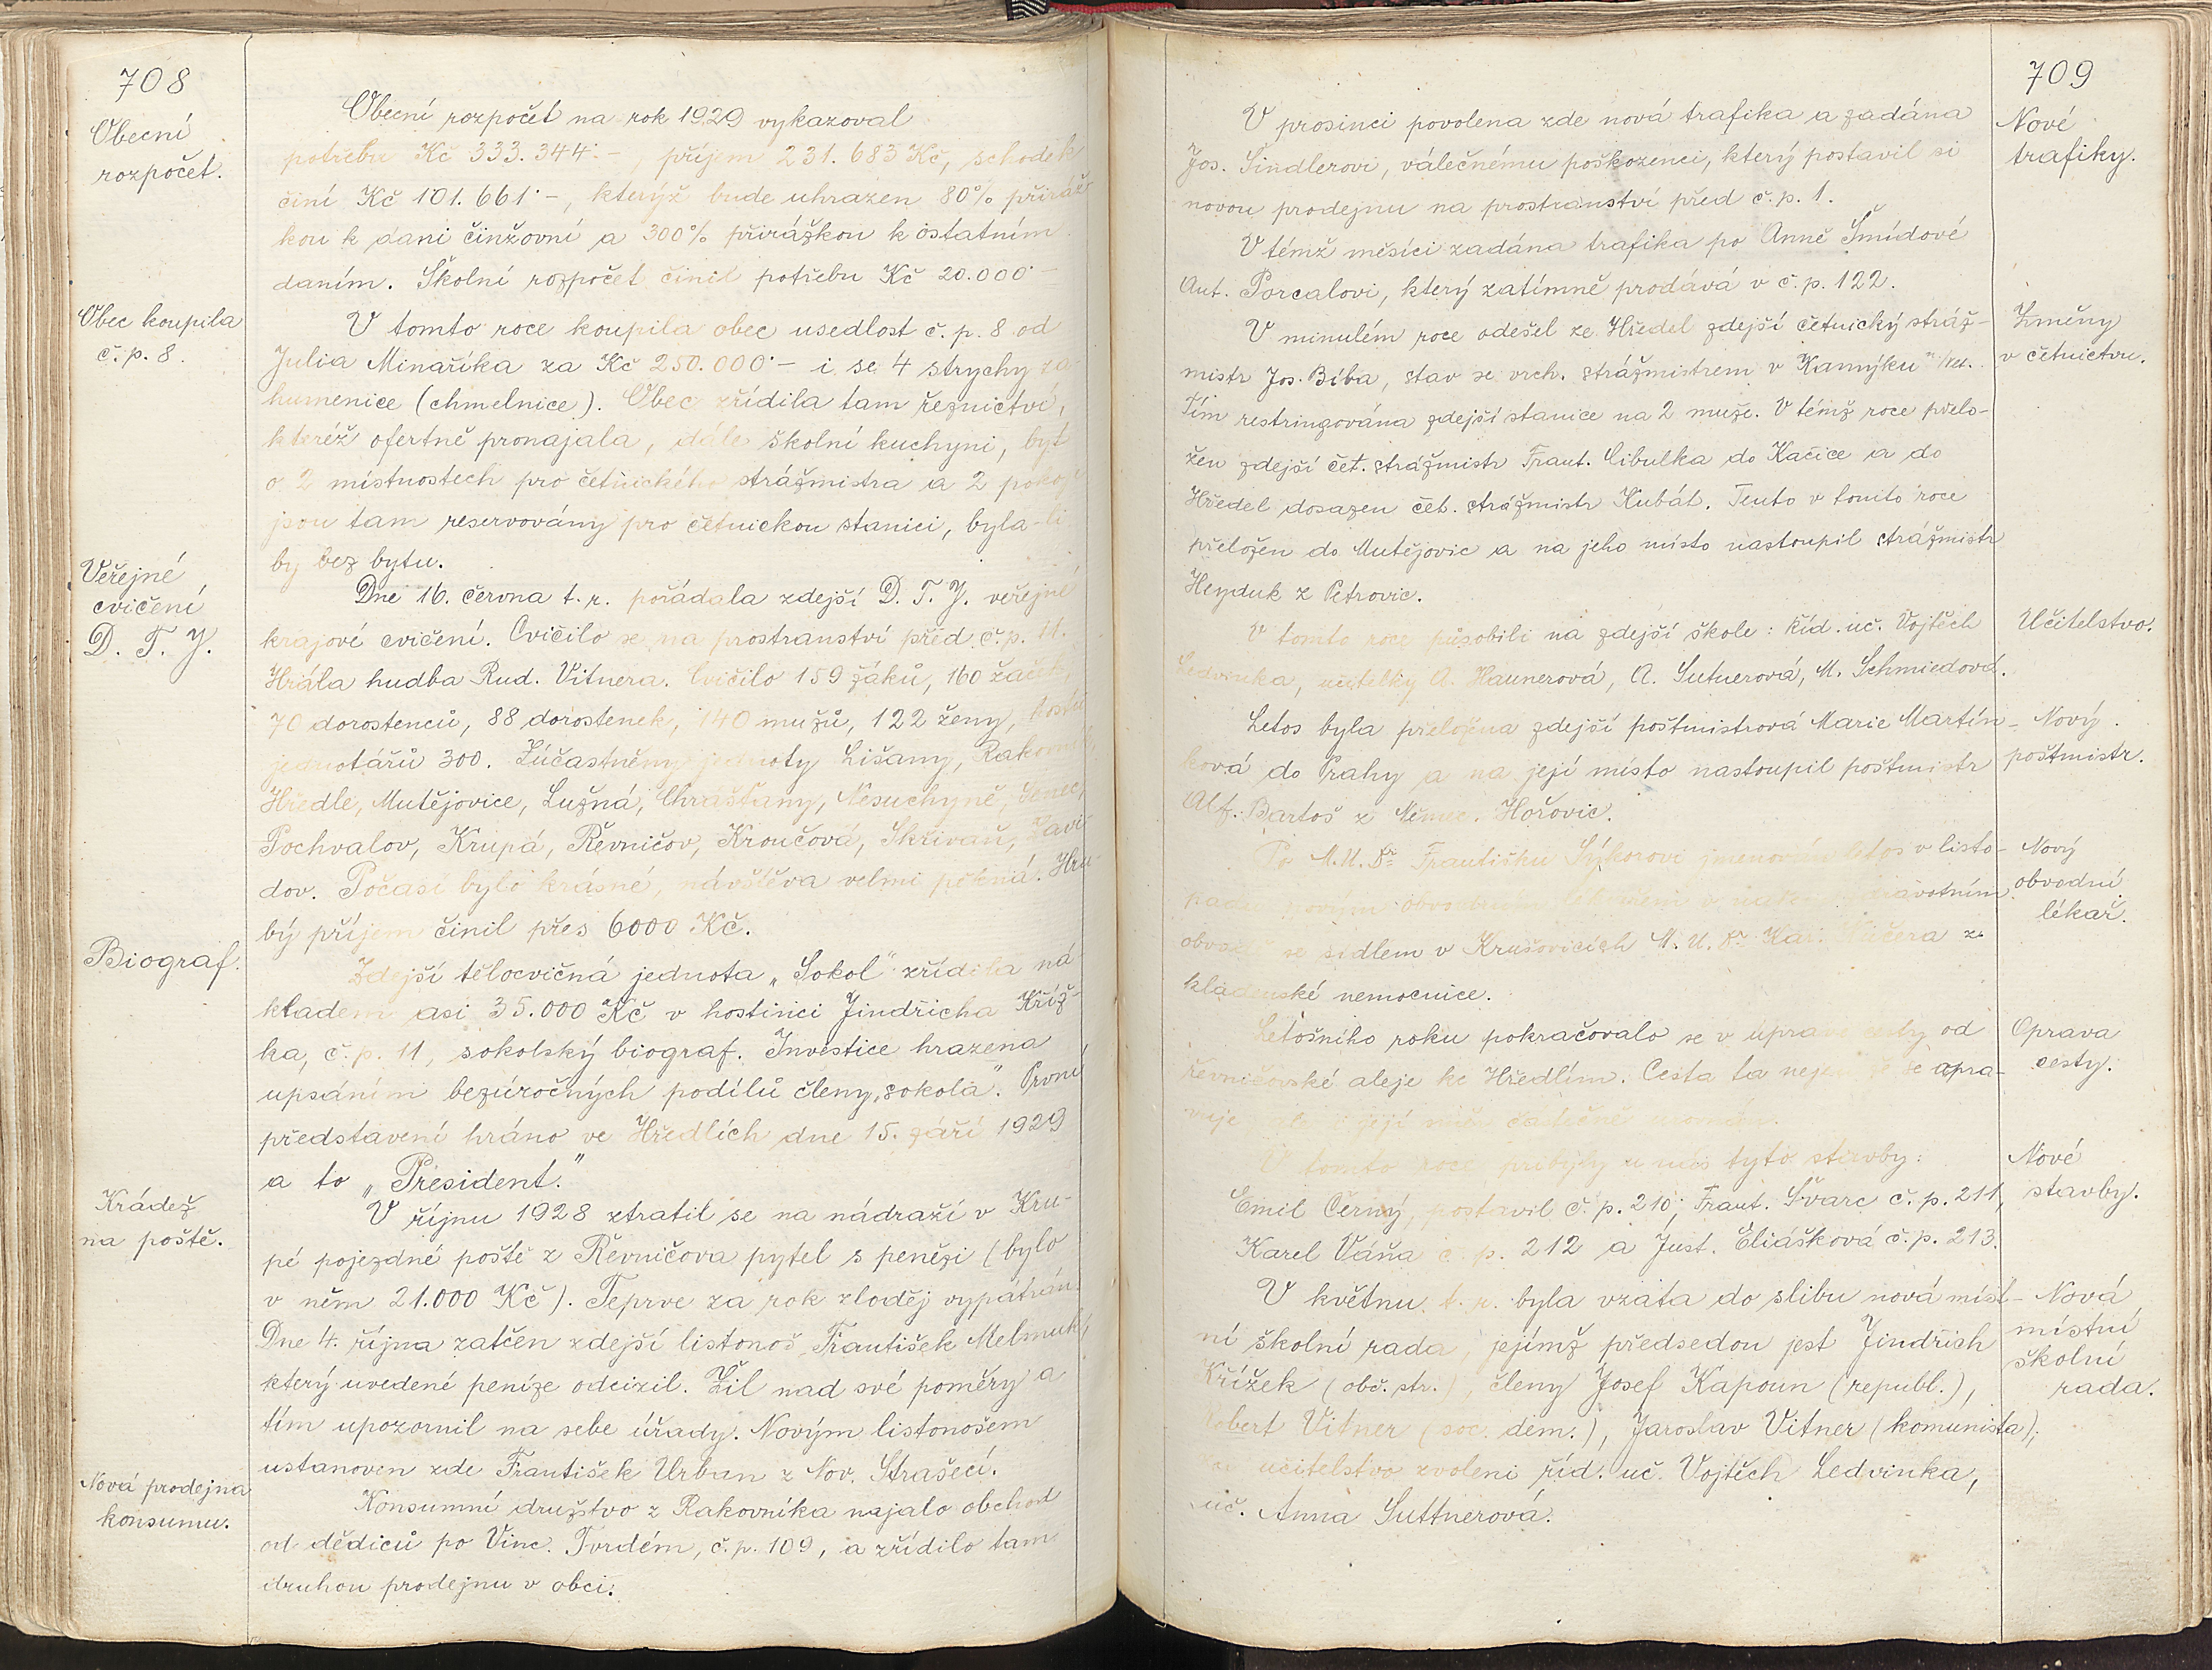 708
Obecní
rozpočet.
Obecní rozpočet na rok 1929 vykazoval
potřebu Kč 333.344·–, příjem 231.683 Kč, schodek
činí Kč 101.661·–, kterýž bude uhrazen 80% přiráž-
kou k dani činžovní a 300% přirážkou k ostatním
daním. Školní rozpočet činil potřebu Kč 20.000·–
Obec koupila
č. p. 8.
V tomto roce koupila obec usedlost č. p. 8 od
Julia Minaříka za Kč 250.000·– i se 4 strychy za-
humenice (chmelnice). Obec zřídila tam řeznictví,
kteréž ofertně pronajala, dále školní kuchyni, byt
o 2 místnostech pro četnického strážmistra a 2 pokoje
jsou tam reservovány pro četnickou stanici, byla-li
by bez bytu.
Veřejné
cvičení
D. T. J.
Dne 16. června t. r. pořádala zdejší D. T. J. veřejné
krajové cvičení. Cvičilo se na prostranství před č. p. 11.
Hrála hudba Rud. Vitnera. Cvičilo 159 žáků, 160 žaček,
70 dorostenců, 88 dorostenek, 140 mužů, 122 ženy, hostů
jednotářů 300. Zúčastněny jednoty Lišany, Rakovník,
Hředle, Mutějovice, Lužná, Chrášťany, Nesuchyně, Senec,
Pochvalov, Krupá, Řevničov, Kroučová, Skřivaň, Zavi-
dov. Počasí bylo krásné, návštěva velmi pěkná. Hru-
bý příjem činil přes 6000 Kč.
Biograf.
Zdejší tělocvičná jednota „Sokol“ zřídila ná-
kladem asi 35.000 Kč v hostinci Jindřicha Kříž-
ka, č. p. 11, sokolský biograf. Investice hrazena
upsáním bezúročných podílů členy „sokola“. První
představení hráno ve Hředlích dne 15. září 1929
a to „President.“
Krádež
na poště.
V říjnu 1928 ztratil se na nádraží v Kru-
pé pojezdné poště z Řevničova pytel s penězi (bylo
v něm 21.000 Kč). Teprve za rok zloděj vypátrán.
Dne 4. října zatčen zdejší listonoš František Melmuk,
který uvedené peníze odcizil. Žil nad své poměry a
tím upozornil na sebe úřady. Novým listonošem
ustanoven zde František Urban z Nov. Strašecí.
Nová prodejna
konsumu.
Konsumní družstvo z Rakovníka najalo obchod
od dědiců po Vinc. Tvrdém, č. p. 109, a zřídilo tam
druhou prodejnu v obci.
709
Nové
trafiky.
V prosinci povolena zde nová trafika a zadána
Jos. Šindlerovi, válečnému poškozenci, který postavil si
novou prodejnu na prostranství před č. p. 1.
V témž měsíci zadána trafika po Anně Šmídové
Ant. Porcalovi, který zatímně prodává v č. p. 122.
Změny
v četnictvu.
V minulém roce odešel ze Hředel zdejší četnický stráž-
mistr Jos. Bíba, stav se vrch. strážmistrem v Kamýku n/Vlt.
Tím restringována zdejší stanice na 2 muže. V témž roce přelo-
žen zdejší čet. strážmistr Frant. Cibulka do Kačice a do
Hředel dosazen čet. strážmistr Kubát. Tento v tomto roce
přeložen do Mutějovic a na jeho místo nastoupil strážmistr
Heyduk z Petrovic.
Učitelstvo.
V tomto roce působili na zdejší škole: říd. uč. Vojtěch
Ledvinka, učitelky A. Haunerová, A. Sutnerová, M. Schmiedová.
Nový
poštmistr.
Letos byla přeložena zdejší poštmistrová Marie Martín-
ková do Prahy a na její místo nastoupil poštmistr
Alf. Bartoš z Němec. Hořovic.
Nový
obvodní
lékař.
Po M. U. Dr. Františku Sýkorovi jmenován letos v listo-
padu novým obvodním lékařem v zdravotním
obvodě se sídlem v Krušovicích M. U. Dr. Kar. z
kladenské nemocnice.
Oprava
cesty.
Letošního roku pokračovalo se v úpravě cesty od
řevničovské aleje ke Hředlím. Cesta ta se upra-
vuje její částečně
Nové
stavby.
V tomto roce přibyly u nás tyto stavby:
Emil Černý, postavil č. p. 210; Frant. Švarc č. p. 211,
Karel Váňa č. p. 212 a Just. Eliášková č. p. 213.
Nová
místní
školní
rada.
V květnu t. r. byla vzata do slibu nová míst-
ní školní rada, jejímž předsedou jest Jindřich
Křížek (obč. str.), členy Josef Kapoun (republ.),
Robert Vitner (soc. dem.), Jaroslav Vitner (komunista);
učitelstvo zvoleni říd. uč. Vojtěch Ledvinka,
uč. Anna Suttnerová.